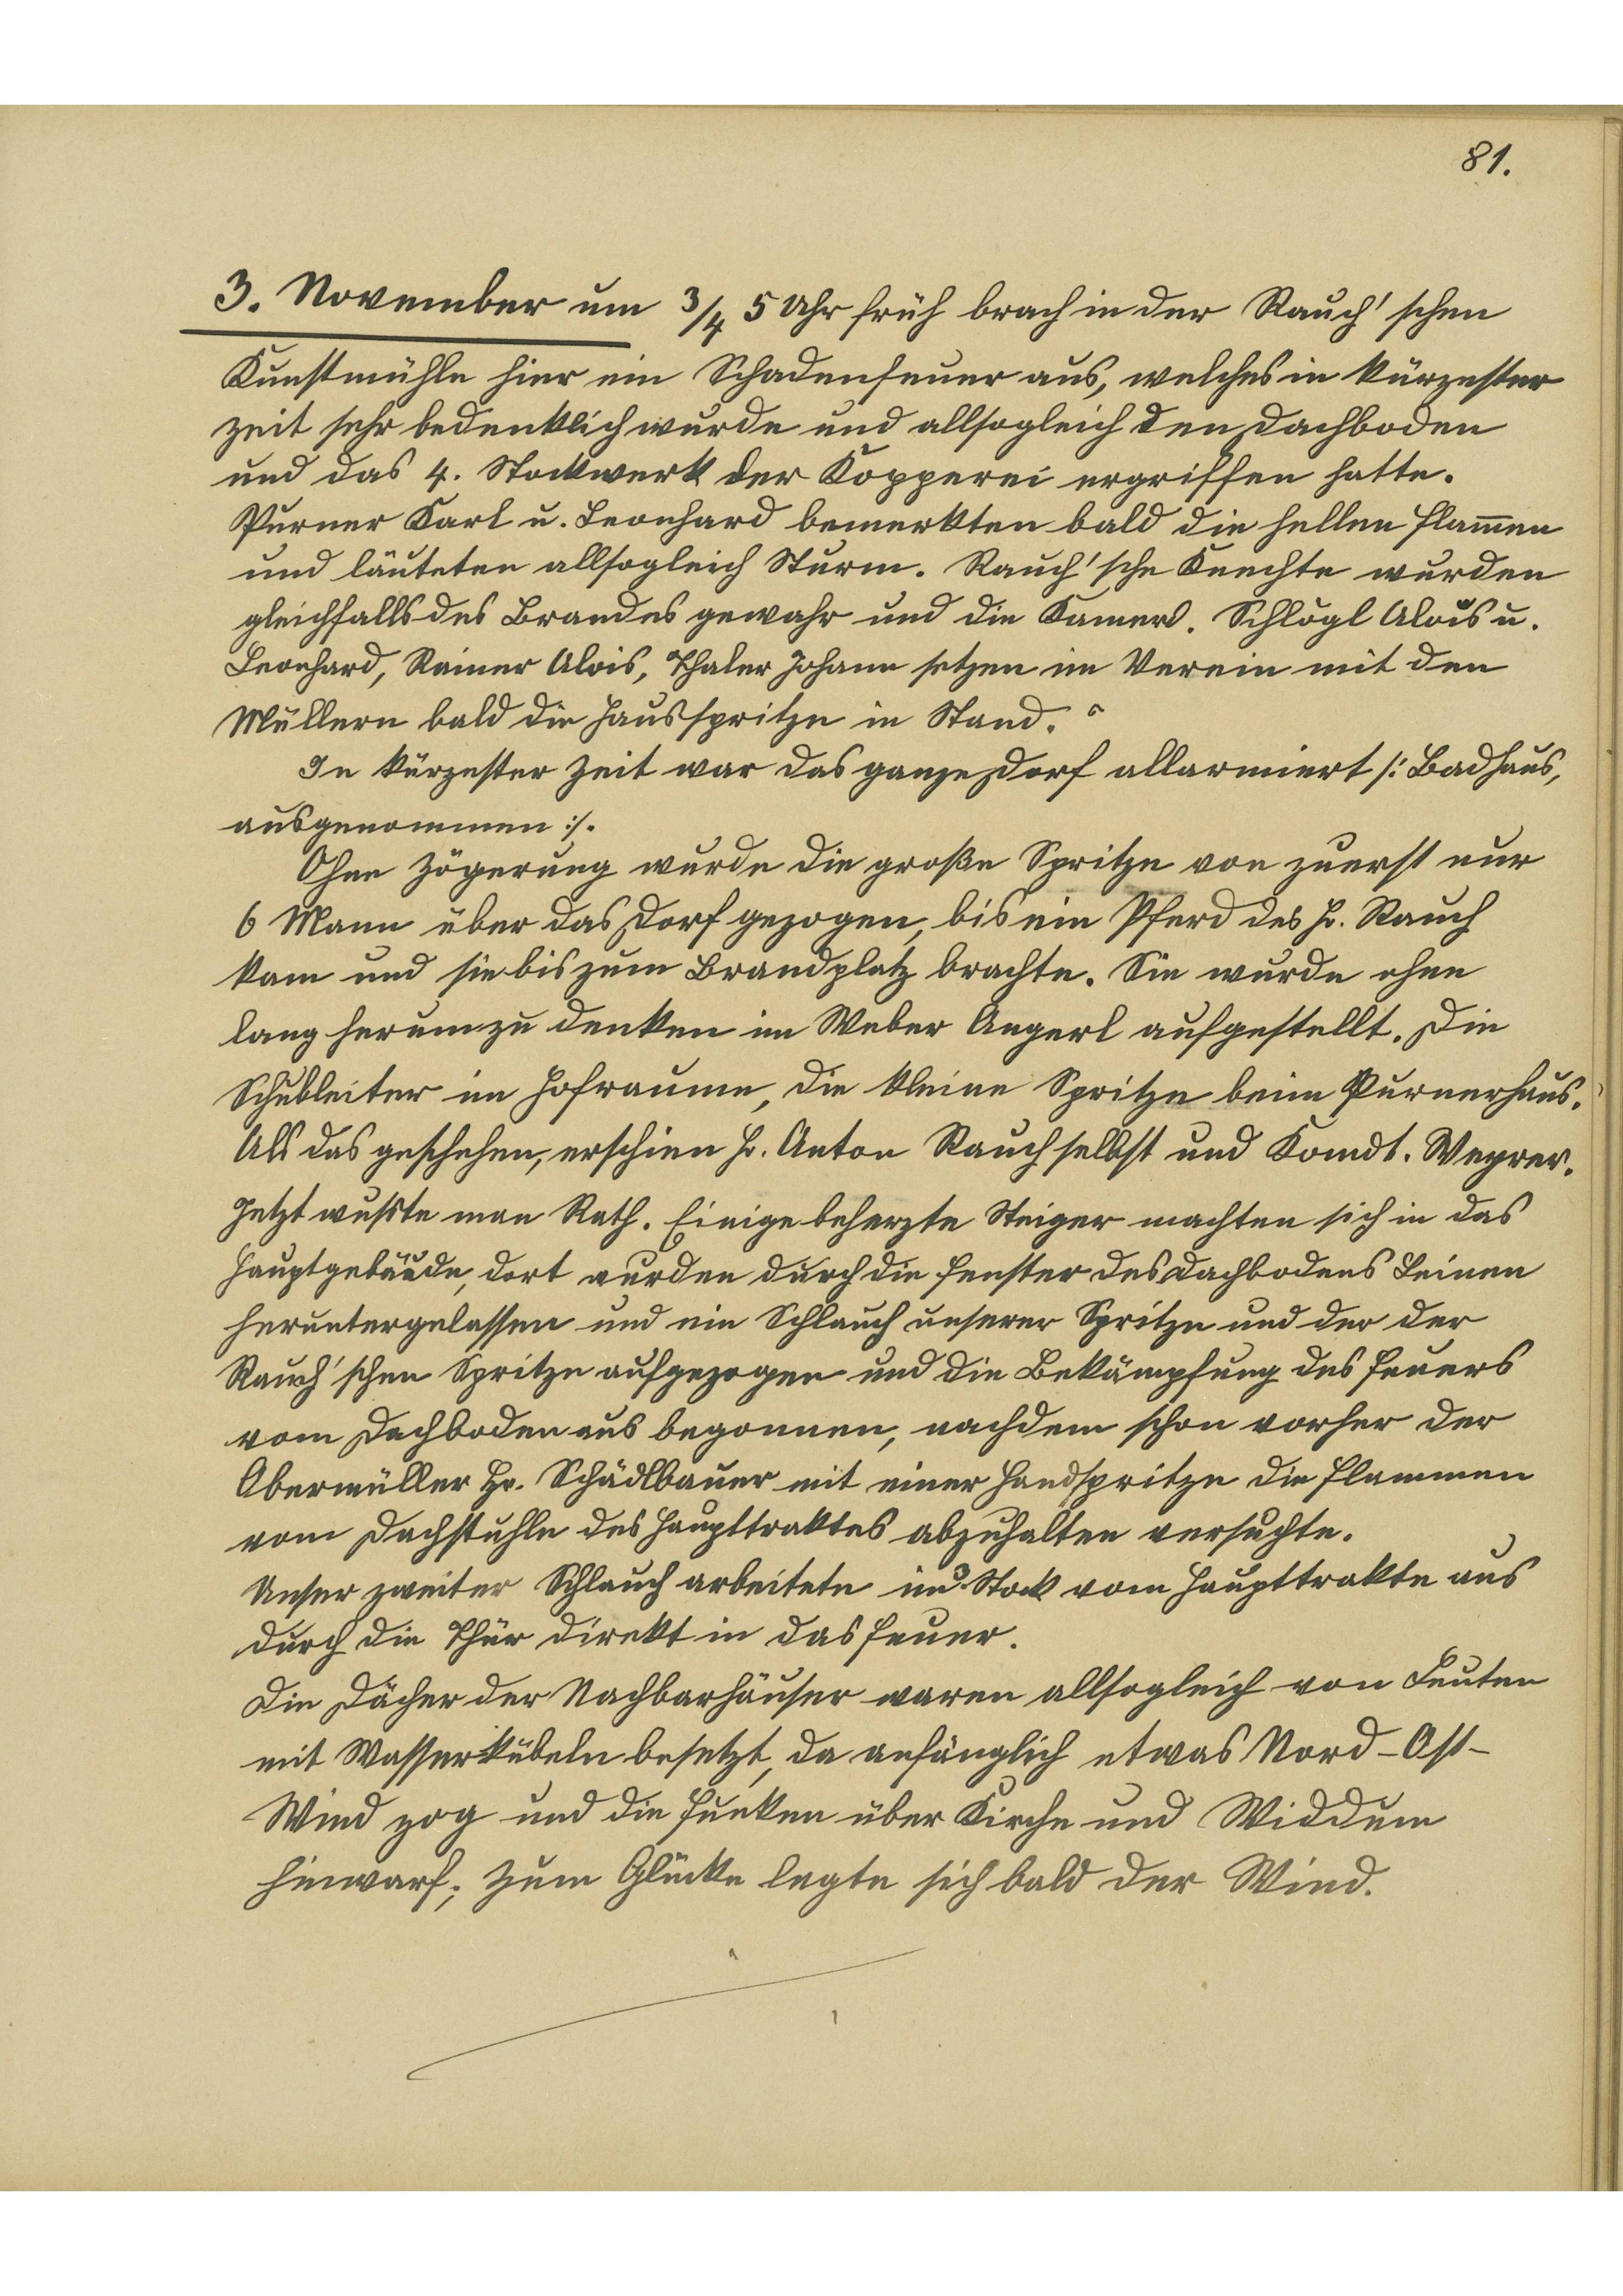 81.
3. November um 3/4 5 Uhr früh brach in der Rauch'schen
Kunstmühle hier ein Schadenfeuer aus, welches in kürzester
Zeit sehr bedenklich wurde und allsogleich den Dachboden
und das 4. Stockwerk der Kopperei ergriffen hatte.
Purner Karl u. Leonhard bemerkten bald die hellen Flam̄en
und läuteten allsogleich Sturm. Rauch'sche Knechte wurden
gleichfalls des Brandes gewahr und die Kamerd. Schlögl Alois u.
Leonhard, Rainer Alois, Thaler Johann setzen im Verein mit den
Müllern bald die Hausspritze in Stand.
In kürzester Zeit war das ganze Dorf allarmiert /: Badhaus,
ausgenommen :/.
Ohne Zögerung wurde die große Spritze von zuerst nur
6 Mann über das Dorf gezogen, bis ein Pferd des Hr. Rauch
kam und sie bis zum Brandplatz brachte. Sie wurde ohne
lang herumzu denken im Weber Angerl aufgestellt. Die
Schubleiter im Hofraume, die kleine Spritze beim Purnerhaus.
Als das geschehen, erschien Hr. Anton Rauch selbst und Komdt. Weyrer.
Jetzt wußte man Rath. Einige beherzte Steiger machten sich in das
Hauptgebäude, dort wurden durch die Fenster des Dachbodens Leinen
heruntergelassen und ein Schlauch unserer Spritze und der der
Rauch'schen Spritze aufgezogen und die Bekämpfung des Feuers
vom Dachboden aus begonnen, nachdem schon vorher der
Obermüller Hr. Schädlbauer mit einer Handspritze die Flammen
vom Dachstuhle des Haupttraktes abzuhalten versuchte.
Unser zweiter Schlauch arbeitete im 3. Stock vom Haupttrakte aus
durch die Thür direkt in das Feuer.
Die Dächer der Nachbarhäuser waren allsogleich von Leuten
mit Wasserkübeln besetzt, da anfänglich etwas Nord-Ost-
Wind zog und die Funken über Kirche und Widdum
hinwarf; zum Glücke legte sich bald der Wind.